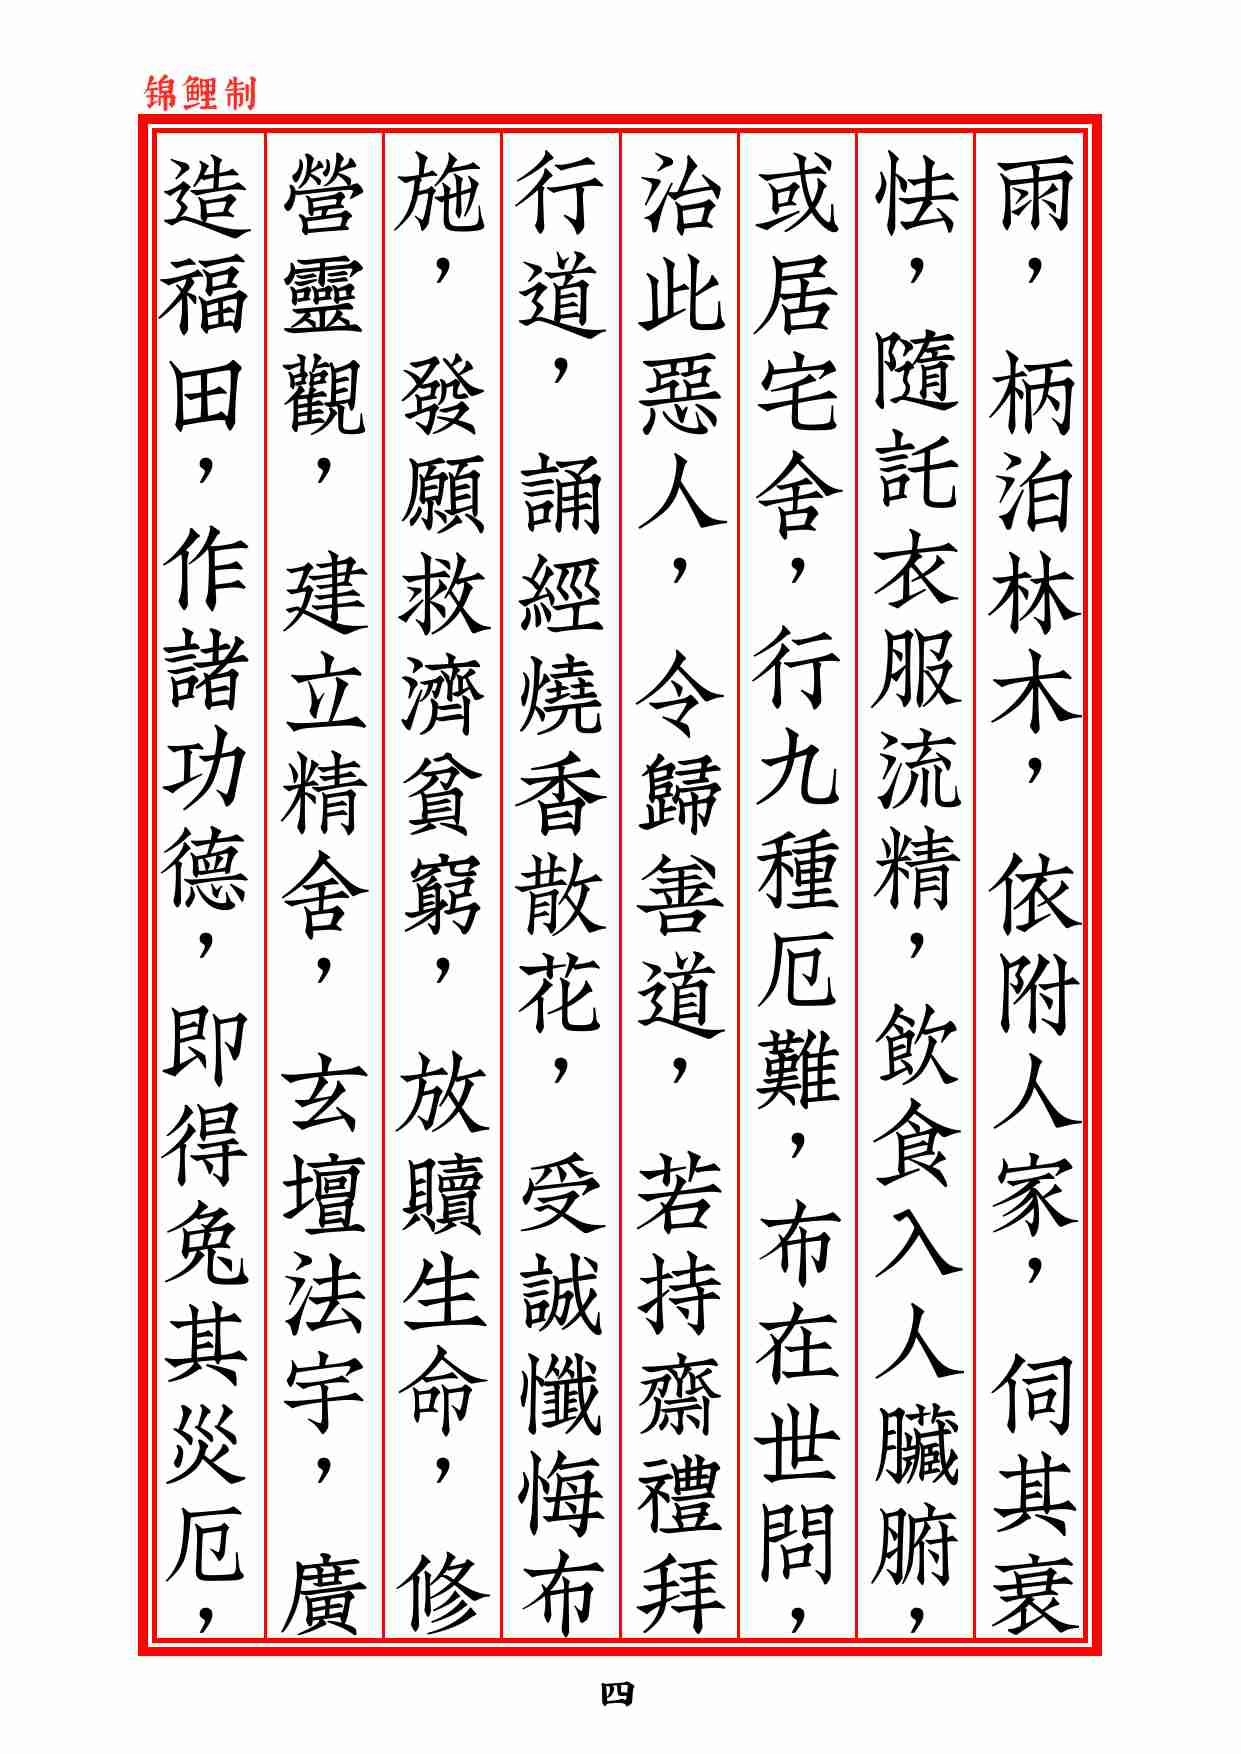 锦鲤制
雨，柄泊林木，依附人家，伺其衰
怯，隨託衣服流精，飲食入人臟腑，
或居宅舍，行九種厄難，布在世問，
治此惡人，令歸善道，若持齋禮拜
行道，誦經燒香散花，受誠懺悔布
施，發願救濟貧窮，放贖生命，修
營靈觀，建立精舍，玄壇法宇，廣
造福田，作諸功德，即得兔其災厄，
四